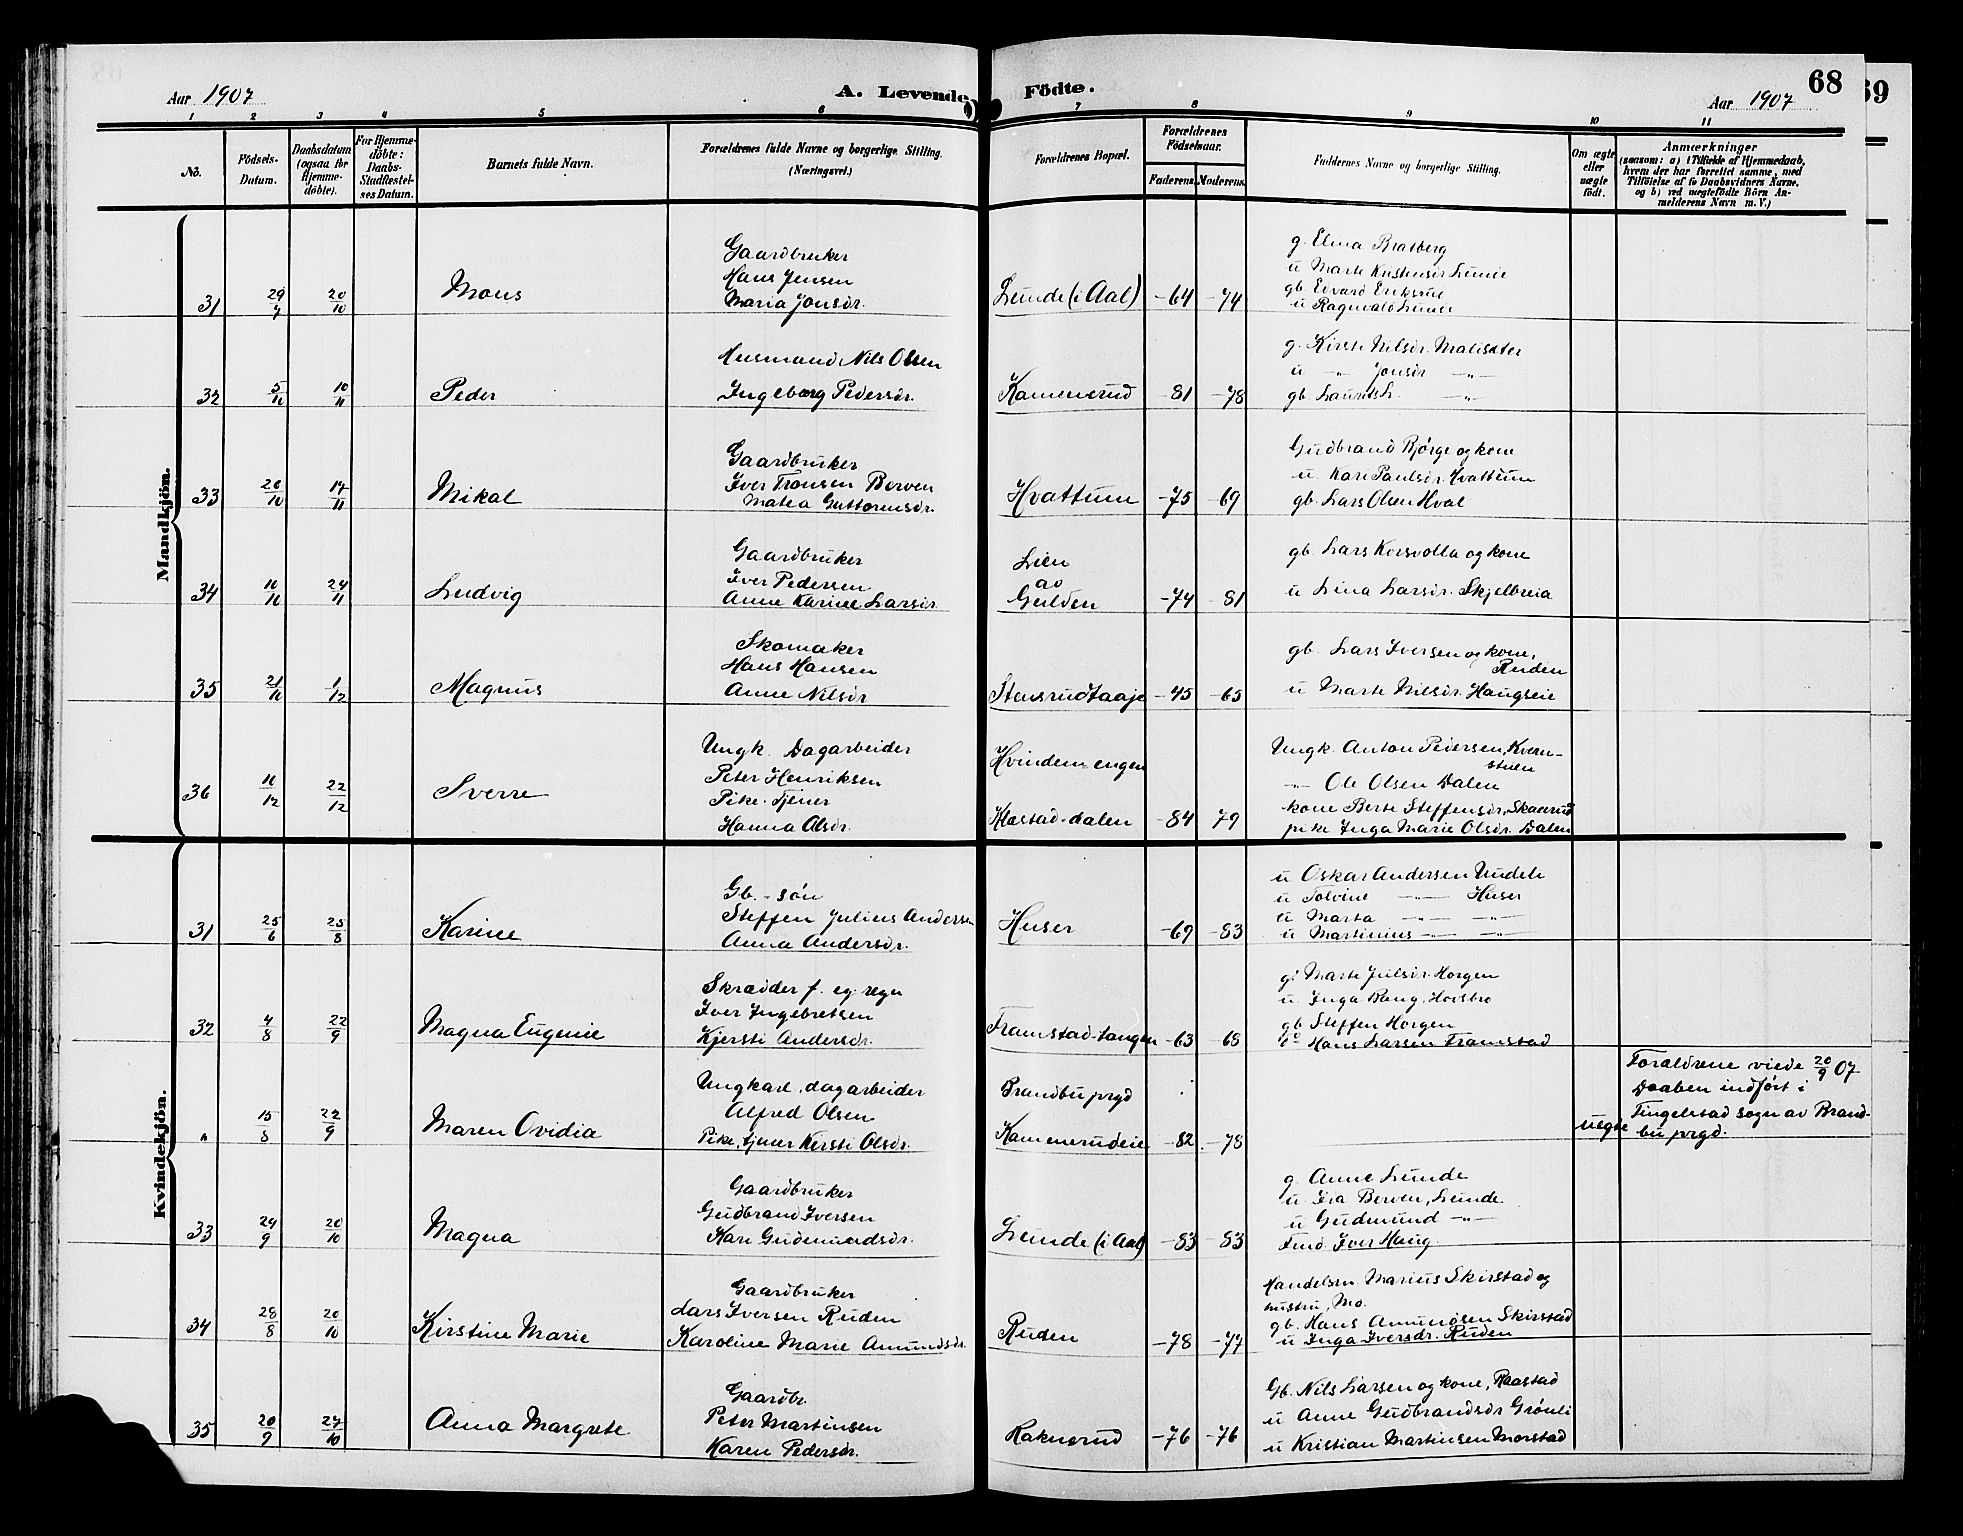 68
69
Aar 1907
A. Levende Födte.
Aar 1907
1 2 3 4 5 6 7 8 9 10 11
No.
Födsels-Datum.
Daabsdatum (ogsaa for Hjemme-döbte).
For Hjemme-döbte: Daabs-Stadfæstel-ses Datum.
Barnets fulde Navn.
Forældrenes fulde Navne og borgerlige Stilling. (Næringsvei.)
Forældrenes Bopæl.
Forældrenes Födselsaar.
Faderens. Moderens.
Faddernes Navne og borgerlige Stilling.
Om ægte eller uægte födt.
Anmærkninger
(saasom: a) i Tilfælde af Hjemmedaab,
hvem der har forrettet samme, med
Tilföielse af to Daabsvidners Navne,
og b) ved uægtefödte Börn An-
melderens Navn m. V.)
Mandkjön.
31 29/7 20/10 Mons
Gaardbruker
Hans Jensen
Maria Jonsdr.
Lunde (i Aal) -64 -74
g. Elina Bratberg
u Marte Kristensdr Lunde
gb. Edvard Eriksrud
u Ragnvald Lunde
32 5/10 10/11 Peder
Husmand Nils Olsen
Ingeborg Pedersdr.
Kammerud 81 -78
g. Kirsti Nilsdr. Maliseter
u -"- Jonsdr -"-
gb. Laurits L. -"-
33 20/10 17/11 Mikal
Gaardbruker
Iver Fransen Berven
Matea Guttormsdr.
Hvattum -75 -69
Gudbrand Bjørge og kone
u Kari Paulsdr. Hvattum
gb. Lars Olsen Hval
34 10/10 24/11 Ludvig
Gaardbruker
Iver Pedersen
Anne Karine Larsdr.
Lien
av
Gulden -74 -81
gb. Lars Korsvolla og kone
u Lina Larsdr. Skjelbreia
35 21/10 1/12 Magnus
Skomaker
Hans Hansen
Anne Nilsdr
Stensrudhaage -45 -65
gb. Lars Iversen og kone,
Ruden
u Marte Nilsdr. Haugseie
36 10/12 22/12 Sverre
Ungk. Dagarbeider
Peter Henriksen
Pike. Tjener
Hanna Olsdr.
Hvindemengen
Klæstad-dalen -84 79
Ungk. Anton Pedersen, Kvern-
stuen
-"- Ole Olsen Dalen
kone Berte Steffensdr. Skaarud
pike Inga Marie Olsdr. Dalen
Kvindekjön.
31 25/6 25/8 Karine
Gb.-søn
Steffen Julius Andersen
Anna Andersdr.
Huser -69 -83
u Oskar Andersen Undeli
u Tolvine -"- Huser
u Marta -"- -"-
u Martinius -"- -"-
32 4/8 22/9 Magna Eugenie
Skrædder f. eg. regn
Iver Ingebretsen
Kjersti Andersdr.
Framstad-tangen -63 -68
g. Marte Juilsdr. Horgen
u Inga Bang, Hovsbro
gb. Steffen Horgen
do Hans Larsen Framstad
" 15/8 22/9 Maren Ovidia
Ungkarl, dagarbeider
Alfred Olsen
Pike, tjener Kersti Olsdr.
Brandbu prgd
Kammerudeie -82 -78
uegte
Forældrene viede 20/9 07
Daaben indført i
Tingelstad sogn av Brand-
bu prgd.
33 24/9 20/10 Magna
Gaardbruker
Gudbrand Iversen
Kari Gudmundsdr.
Lunde (i Aal) -83 -83
g. Anne Lunde
u. Ida Berven, Lunde
u Gudmund -"-
Fmd. Iver Haug
34 28/8 20/10 Kirstine Marie
Gaardbruker
Lars Iversen Ruden
Karoline Marie Amundsdr.
Ruden -78 -77
Handelsm. Marius Skirstad og
hustru, Mo.
gb. Hans Amundsen Skirstad
u Inga Iversdr. Ruden
35 20/9 27/10 Anna Margrete
Gaardbr.
Peter Martinsen
Karen Pedersdr.
Raknerud -76 -76
Gb. Nils Larsen og kone, Raastad
u Anne Gudbrandsdr Grønli
u Kristian Martinsen Morstad